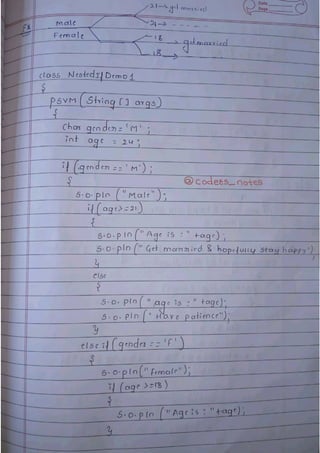 Date
Page
Ex
21 → get married
Male
21 →
Female
18
→ get married
18
class NestedIfDemo1
{
psvm (String [] args)
{
Char gender = 'M' ;
int age = 24 ;
if (gender == 'M') ;
{
@coders_notes
s.o.pln ("Male") ;
if (age >= 21)
{
s.o.pln ("Age is : " +age) ;
s.o.pln ("Get married & hopefully stay happy")
}
else
{
s.o.pln ("age is : " +age) ;
s.o.pln ("Have patience") ;
}
else if (gender == 'F')
{
s.o.pln ("female") ;
if (age >= 18)
{
s.o.pln ("Age is : " +age) ;
}